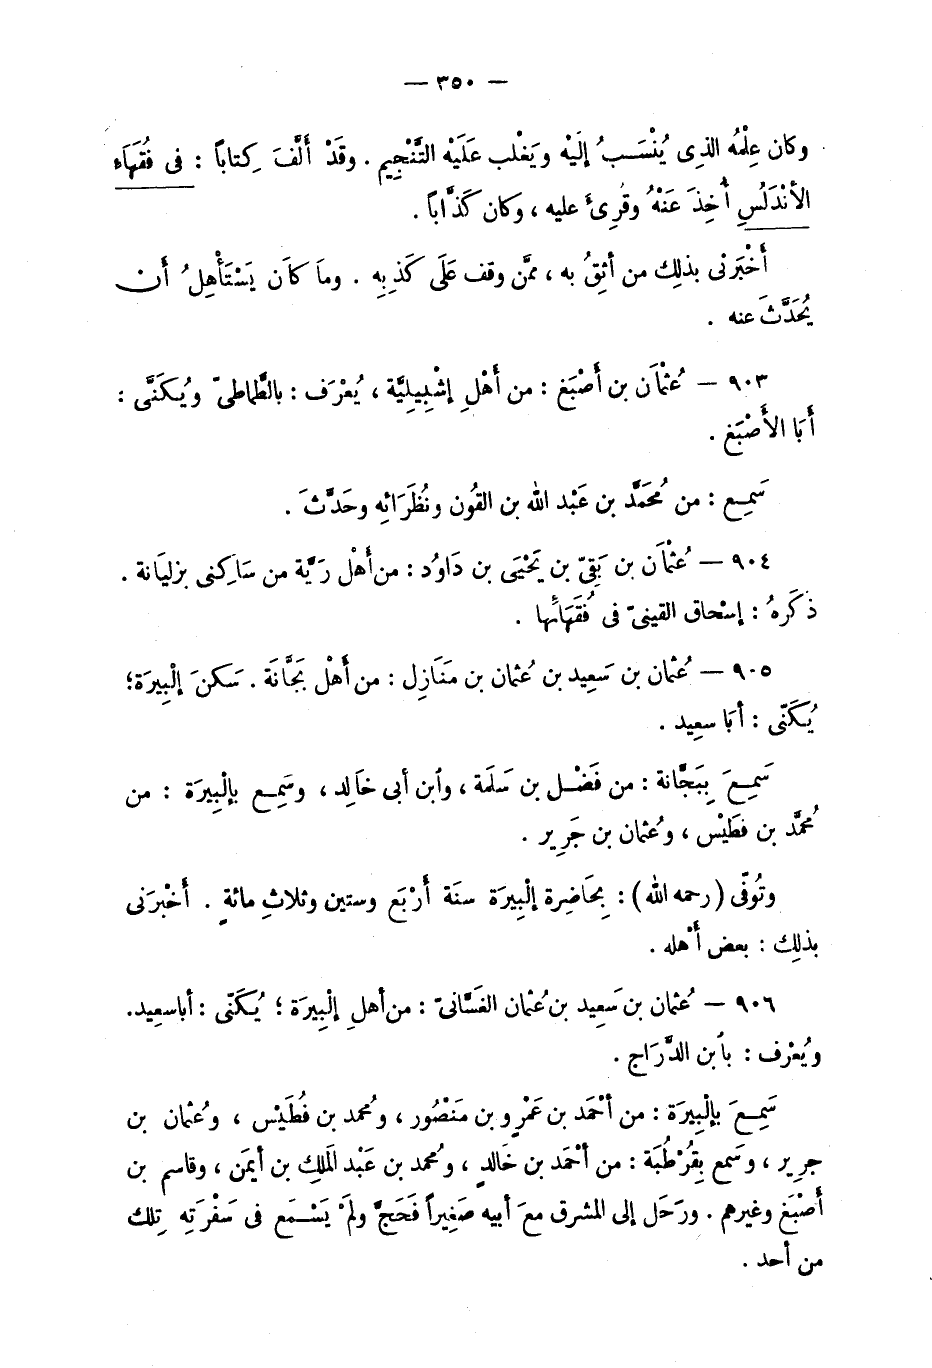 — ٣٥٠ —
وكان عِلْمُه الذِى يُنْسَبُ إلَيْه ويَغلب عَلَيْه التَّنْجِيم . وقَدْ أَلَّفَ كِتاباً : فى فُقَهَاء
الأنْدَلُسِ أُخِذَ عَنْهُ وقُرِئَ عليه ، وَكان كَذَّاباً .
أَخْبَرنى بذلِك من أثِقُ به ، ممَّن وقف عَلَى كَذِبِه . ومَا كاَن يَسْتَأْهِلُ أن
يُحَدَّثَ عنه .
٩٠٣ — عُثْمَان بن أَصْبَغ : من أهْلِ إشْبِيلِيَّة ، يُعْرَف : بالطَّماطىّ ويُكَنَّى :
أَبَا الأَصْبَغ .
سَمِع : من مُحَمَّد بن عَبْد الله بن القُون ونُظَرَائه وحَدَّثَ .
٩٠٤ — عُثْمَان بن بَقِىّ بن يَحْيَى بن دَاوُد : من أَهْل رَيَّة من سَاكِنى بزليانة .
ذكَرهُ : إسْحاق القينىّ فى فُقَهَائِها .
٩٠٥ — عُثمان بن سَعِيد بن عُثمان بن مَنَازِل : من أَهْل بَجَّانَة . سَكنَ إلْبِيرَة؛
يُكَنّى : أبَا سعِيد .
سَمِعَ بِبَجَّانة : من فَضْل بن سَلَمَة ، وٱبن أبى خاَلِد ، وسَمِع بإلْبِيرَة : من
مُحمَّد بن فطَيْس ، وعُثمان بن جَرِير .
وتُوفّى (رحمه الله) : بِحَاضِرة إلْبِيرَة سنَة أَرْبَع وستين وثلاثِ مائةٍ . أَخْبرَنى
بذلِك : بعض أَهْله .
٩٠٦ — عُثمان بن سَعِيد بن عُثمان الغَسَّانىّ : من أهلِ إلْبِيرَة ؛ يُكَنّى : أباسعِيد.
ويُعْرف : بٱبن الدَّرَاج .
سَمِعَ بإلْبِيرَة : من أحْمَد بن عَمْرٍو بن مَنْصُور ، ومُحمد بن فُطَيْس ، وعُثمان بن
جرِير ، وَسَمع بِقُرْطُبَة : من أحْمَد بن خَالدٍ ، ومُحمد بن عَبْد الَملِك بن أيمَن ، وقاسم بن
أَصْبَغ وغيرهم . ورَحَل إلى المشرق معَ أبيه صَغِيراً فَحَجَّ ولَمْ يَسْمَع فى سَفْرَتِه تِلك
من أحد .